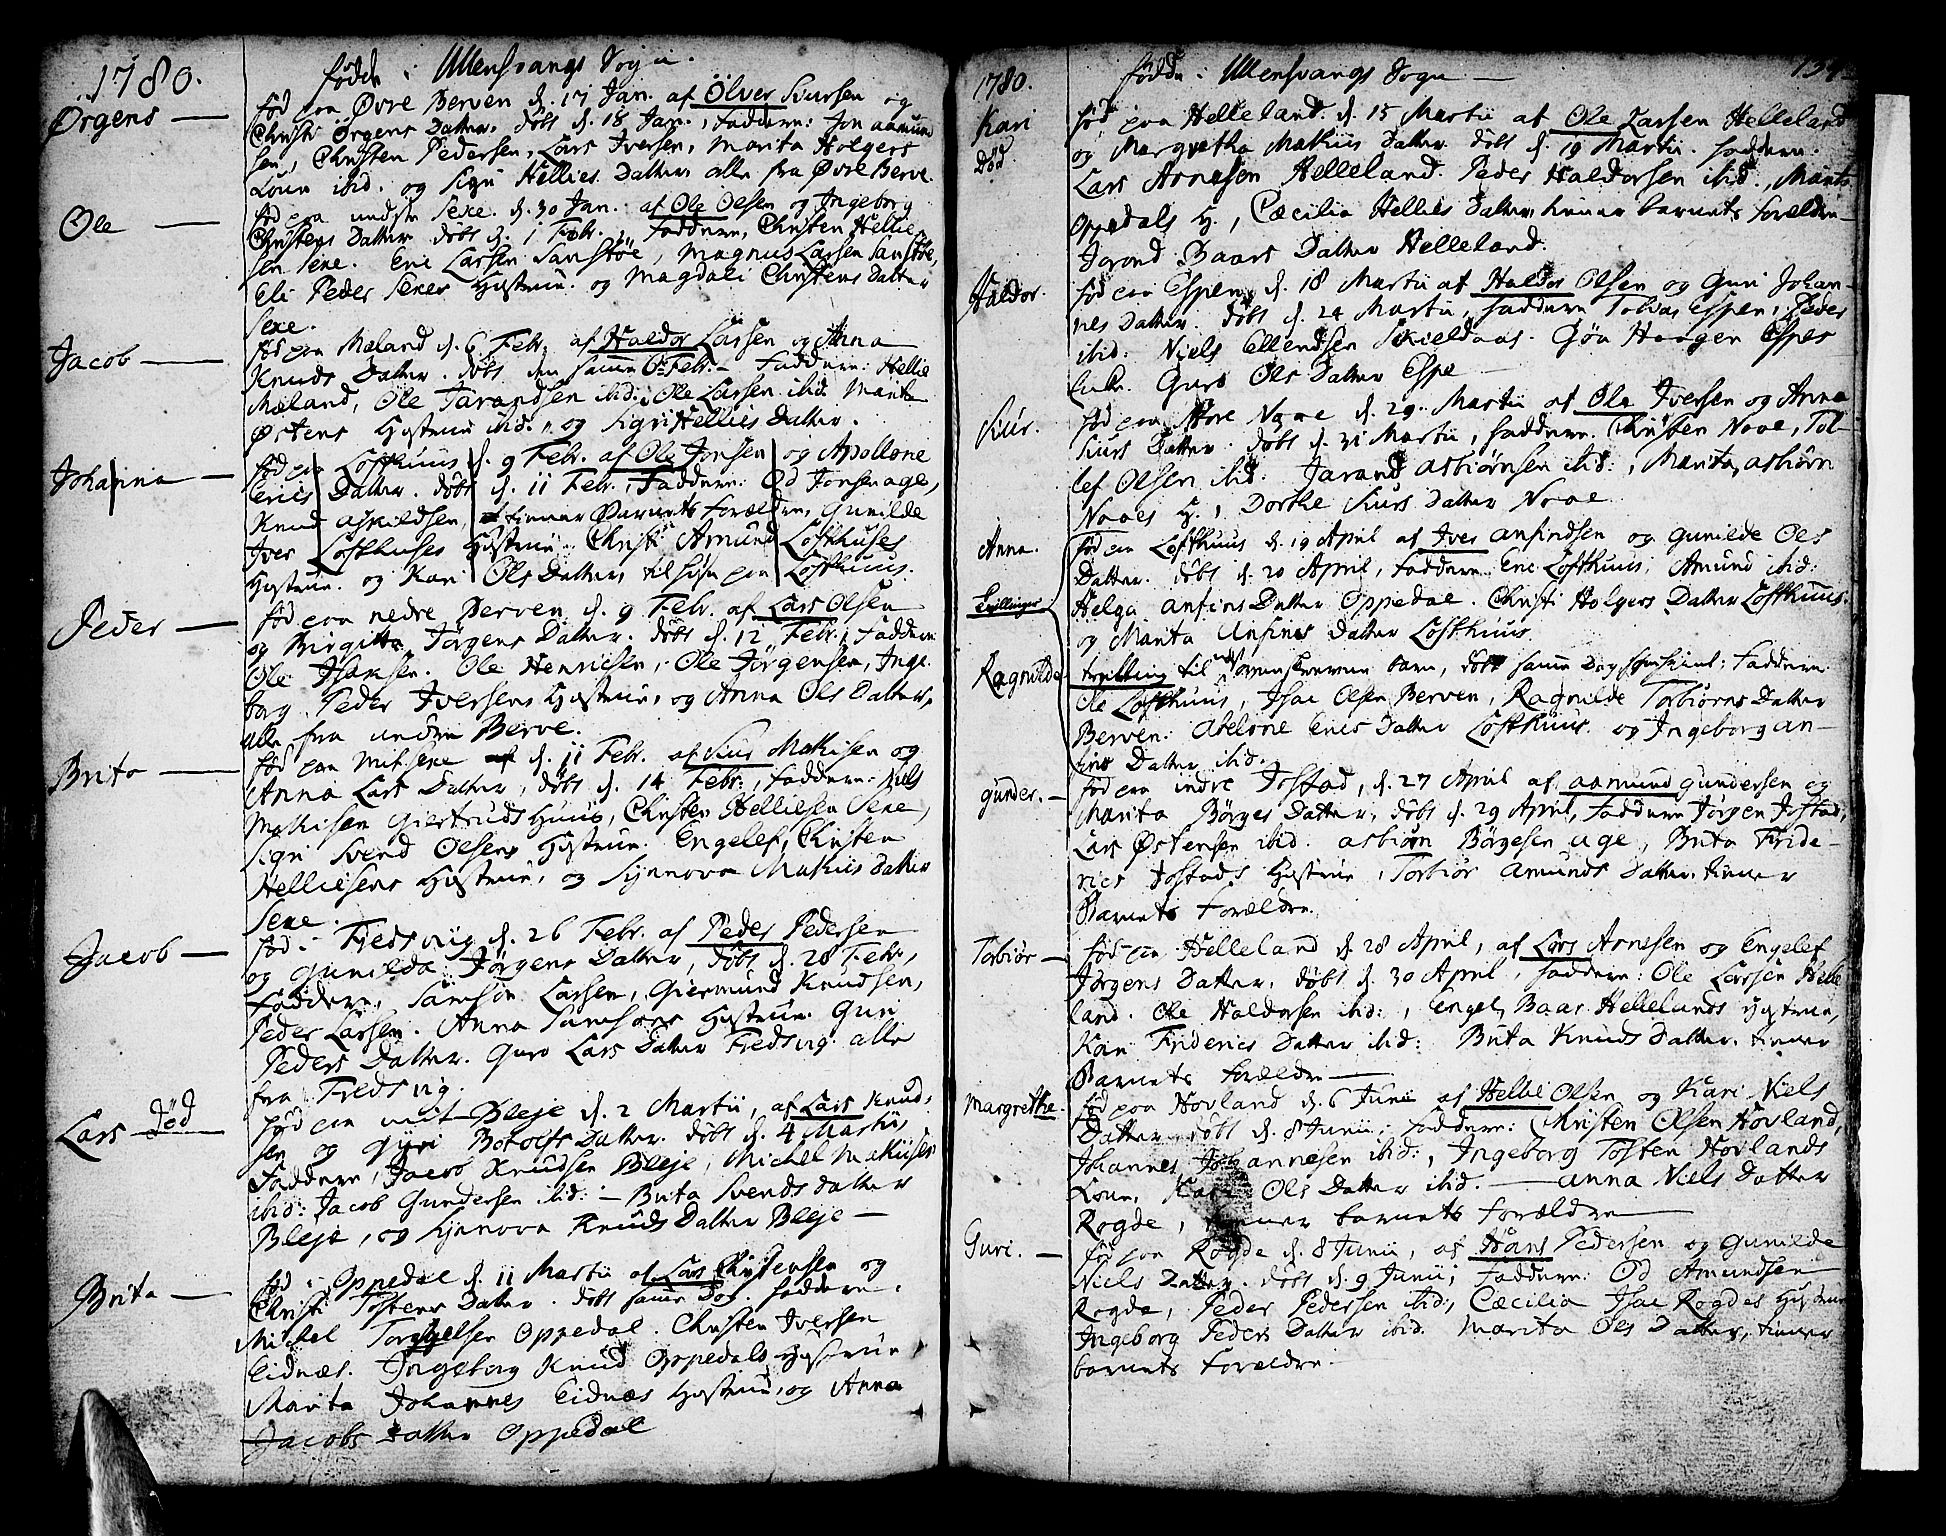 1780.
fødde i Ullensvangs Sogn.
Ørgens —
fød paa Øvre Berven d. 17 Jan. af Olver Siursen og
Christi Ørgens Datter, døbt d. 18 Jan., Faddere: Jon Aamund
sen, Christen Pedersen, Lars Iversen, Marita Holgers
Kone ibid. og Sigri Hellies Datter alle fra Øvre Berve.
Ole —
fød paa nedste Sexe. d. 30 Jan. af Ole Olsen og Ingeborg
Christens Datter døbt d. 1 Febr., Faddere, Christen Hellie
sen Sexe. Eric Larsen Sanstøe, Magnus Larsen Sanstøe,
Eli Peder Sexes Hustrue. og Magdali Christens Datter
Sexe.
Jacob —
fød paa Mæland d. 6 Febr. af Haldor Larsen og Anna
Knuds Datter. døbt den samme 6 Febr. — Faddere: Hellie
Mæland, Ole Jarandsen ibid: Ole Larsen ibid. Marita
Østens Hustrue ibid., og Sigri Hellies Datter.
Johanna —
fød paa Lofthuus d. 9 Febr. af Ole Jonsen og Apollone
Erics Datter. døbt d. 11 Febr., Faddere: Od Jonsen Age,
Knud Askildsen, tiener Barnets Forældre, Gunilde
Iver Lofthuses Hustrue. Christi Amund Lofthuses
Hustrue. og Kari Ols Datter, til huse paa Lofthuus.
Peder —
fød paa nedre Berven d. 9 Febr. af Lars Olsen
og Birgitta Jørgens Datter. døbt d. 12 Febr. Faddere
Ole Isaksen. Ole Henricsen, Ole Jørgensen, Inge
borg Peder Iversens Hustrue, og Anna Ols Datter,
alle fra nedre Berve.
Brita —
fød paa Mit Sexe d. 11 Febr. af Siur Mathisen og
Anna Lars Datter, døbt d. 14 Febr:, Faddere: Niels
Mathisen Giertruds Huus, Christen Helliesen Sexe,
Sigri Svend Olsens Hustrue. Engelef, Christen
Helliesens Hustrue, og Synnova Mathis Datter
Sexe.
Jacob —
fød i Fredsviig d. 26 Febr. af Peder Pedersen
og Gunilda Jørgens Datter, døbt d. 28 Febr,
Faddere, Samson Larsen, Giermund Knudsen,
Peder Larsen. Anna Samsons Hustrue. Guri
Peders Datter. Guro Lars Datter Fredsvig. alle
fra Fredsvig.
Lars død
fød paa mit Bleje d. 2 Martii, af Lars Knud-
sen og Gyri Botolfs Datter. døbt d. 4 Martii,
Faddere, Jacob Knudsen Bleje, Michel Mathisen
ibid: Jacob Gundersen ibid: — Brita Svends datter
Bleje, og Synnova Knuds Datter Bleje —
Brita —
fød i Oppedal d. 11 Martii af Lars Christensen og
Christi Tostens Datter. døbt samme Dag. Faddere,
Michel Torgelsen Oppedal. Christen Iversen
Eidnæs. Ingeborg Knud Oppedals Hustrue
Marita Johannes Eidnæs Hustrue, og Anna
Jacobs Datter Oppedal
1780.
fødde i Ullensvangs Sogn —
Kari
Død.
fød paa Helleland. d. 15 Martii af Ole Larsen Helleland
og Margretha Mathiis Datter døbt d. 19 Martii. Faddere:
Lars Arnesen Helleland. Peder Haldorsen ibid., Marita
Oppedals H., Cæcilia Hellies Datter, tiener barnets forældre —
Jorond Baars Datter Helleland.
Haldor.
fød paa Espen d. 18 Martii af Haldor Olsen og Guri Johan-
nes Datter. døbt d. 24 Martii, Faddere Tobias Espen, Peder
ibid: Niels Ellendsen Skieldaas. Gøa Haagen Espes
Enke. Guro Ols Datter Espe —
Siur.
fød paa Store Naae d. 29. Martii af Ole Iversen og Anna
Siurs Datter. døbt d. 31 Martii, Faddere. Christen Naae, Tol-
lef Olsen ibid. Jarand Asbiørnsen ibid:, Marita Asbiørn
Naaes H., Dorthe Siurs Datter Naae
Anna.
fød paa Lofthuus d. 19 April af Iver Anfindsen og Gunilde Ols
Datter. døbt d. 20 April, Faddere Eric Lofthuus, Amund ibid:
Tvillinger
Helga Anfins Datter Oppedal. Christi Holgers Datter Lofthuus.
og Marita Anfins Datter Lofthuus
Ragnilde
tvilling til barn, døbt samme Dag Faddere:
Ole Lofthuus, Isac Olsen Berven, Ragnilde Torbiørns Datter
Berven: Abelone Erics Datter Lofthuus og Ingeborg An-
fins Datter ibid.
Gunder. —
fød paa indre Jostad, d. 27 April af Aamund Gundersen og
Marita Børges Datter, døbt d. 29 April, Faddere Jørgen Jostad,
Lars Østensen ibid. Asbiørn Børgesen Age, Brita Fride-
rics Jostads Hustrue, Torbiør Amunds Datter, tiener
Barnets Forældre.
Torbiør —
fød paa Helleland d. 28 April, af Lars Arnesen og Engelef
Jørgens Datter, døbt d. 30 April, Faddere: Ole Larsen Helle
land. Ole Haldorsen ibid:, Engel, Baar Hellelands Hustrue,
Kari Friderics Datter ibid: Brita Knuds Datter, tiener
Barnets Forældre —
Margrethe.
fød paa Hovland d. 6 Junii af Hellie Olsen og Kari Niels
Datter døbt d. 8 Junii, Faddere: Christen Olsen Hovland,
Johannes Johannesen ibid:, Ingeborg Tosten Hovlands
Kone, Kari Ols Datter ibid. — Anna Niels Datter
Rogde, tiener barnets Forældre —
Guri. —
fød paa Rogde d. 8 Junii, af Hans Pedersen og Gunilde
Niels Datter. døbt d. 9 Junii, Faddere: Od Amundsen
Rogde, Peder Pedersen ibid:, Cæcilia Isac Rogdes Hustrue
Ingeborg Peders Datter ibid. Marita Ols Datter, tiener
barnets Forældre.